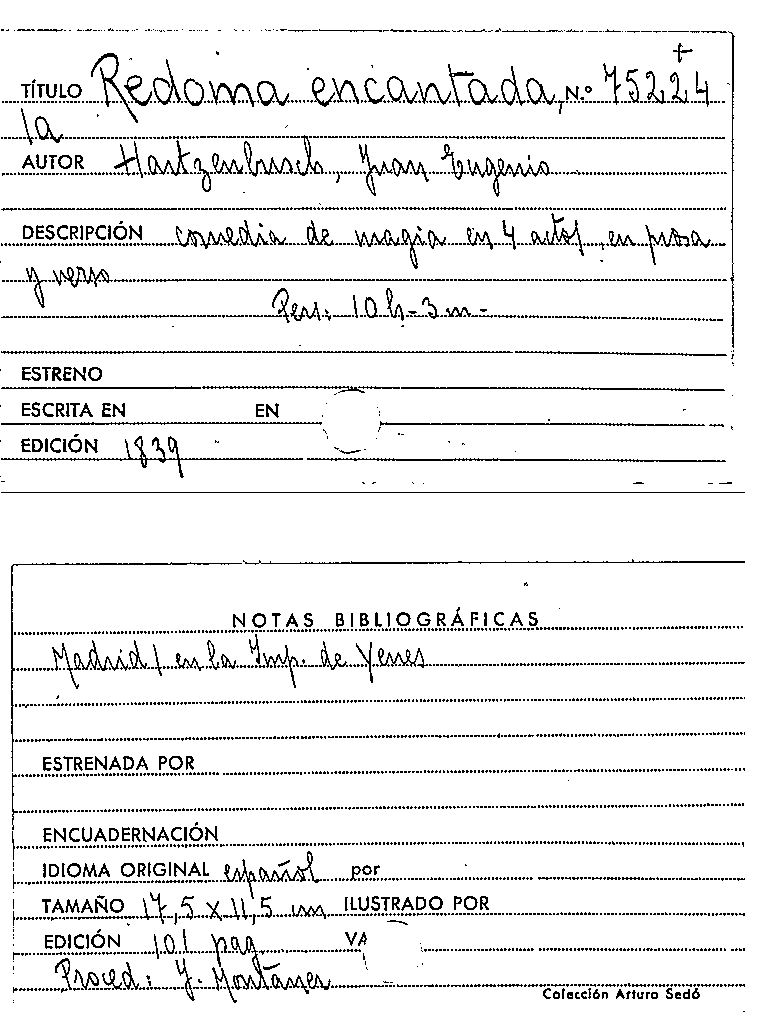 +
TÍTULO Redoma encantada, N.º 75224
la
AUTOR Hartzenbusch, Juan Eugenio
DESCRIPCIÓN comedia de magia en 4 actos, en prosa
y verso
Pers: 10 h- 3 m-
ESTRENO
ESCRITA EN EN
EDICIÓN 1839
NOTAS BIBLIOGRÁFICAS
Madrid / en la Imp. de Yenes
ESTRENADA POR
ENCUADERNACIÓN
IDIOMA ORIGINAL español por
TAMAÑO 17,5 X 11,5 cm ILUSTRADO POR
EDICIÓN 101 pag VA
Proced: J. Montaner
Colección Arturo Sedó